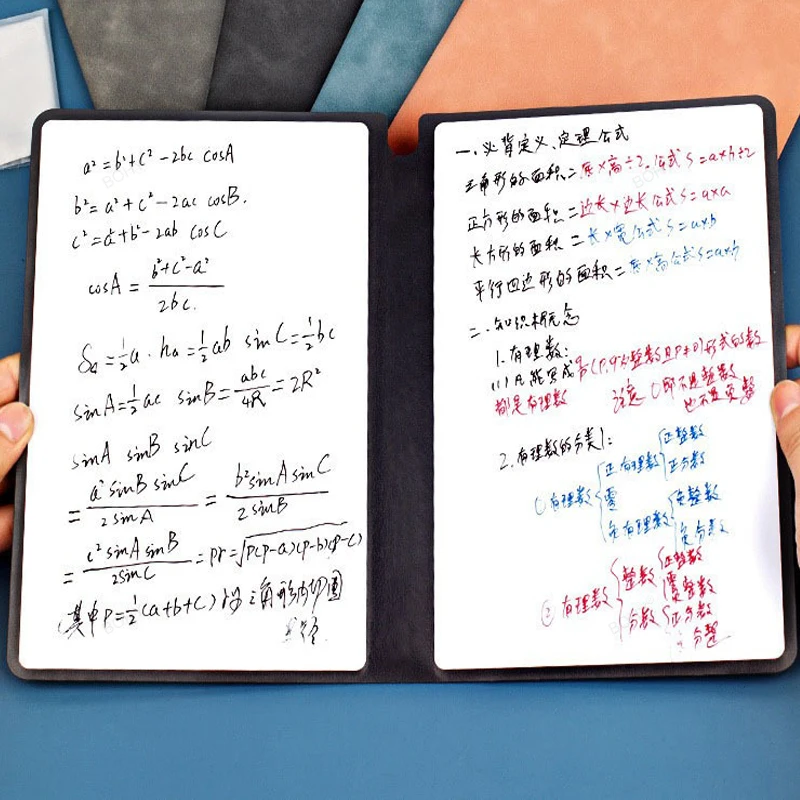 a²=b²+c²-2bc cosA
b²=a²+c²-2ac cosB.
c²=a²+b²-2ab cosC
cosA=(b²+c²-a²)/2bc.
Sa=½a·ha=½ab sinC=½bc
sinA=½ac sinB=abc/4R=2R²
sinA sinB sinC
=a²sinB sinC/2sinA=b²sinA sinC/2sinB
=c²sinA sinB/2sinC=pr=√p(p-a)(p-b)(p-c)
(其中p=½(a+b+c) 三角形内切圆
半径
一、必背定义、定理公式
三角形的面积=底×高÷2.公式S=a×h÷2
正方形的面积=边长×边长公式S=a×a
长方形的面积=长×宽公式S=a×b
平行四边形的面积=底×高公式S=a×h
二、知识概念
1.有理数:
(1)凡能写成 (p,q为整数且p≠0)形式的数
都是有理数 注意 0即不是整数
也不是
2.有理数的分类:
正整数
正有理数
正分数
①有理数 零
负整数
负有理数
负分数
正整数
整数
②有理数 零
分数 正分数